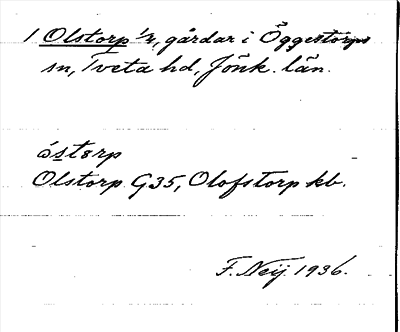 1 Olstorp ½, gårdar i Öggestorps
sn, Tveta hd, Jönk. län.
óstorp
Olstorp G35, Olofstorp kb.
F. Neij. 1936.